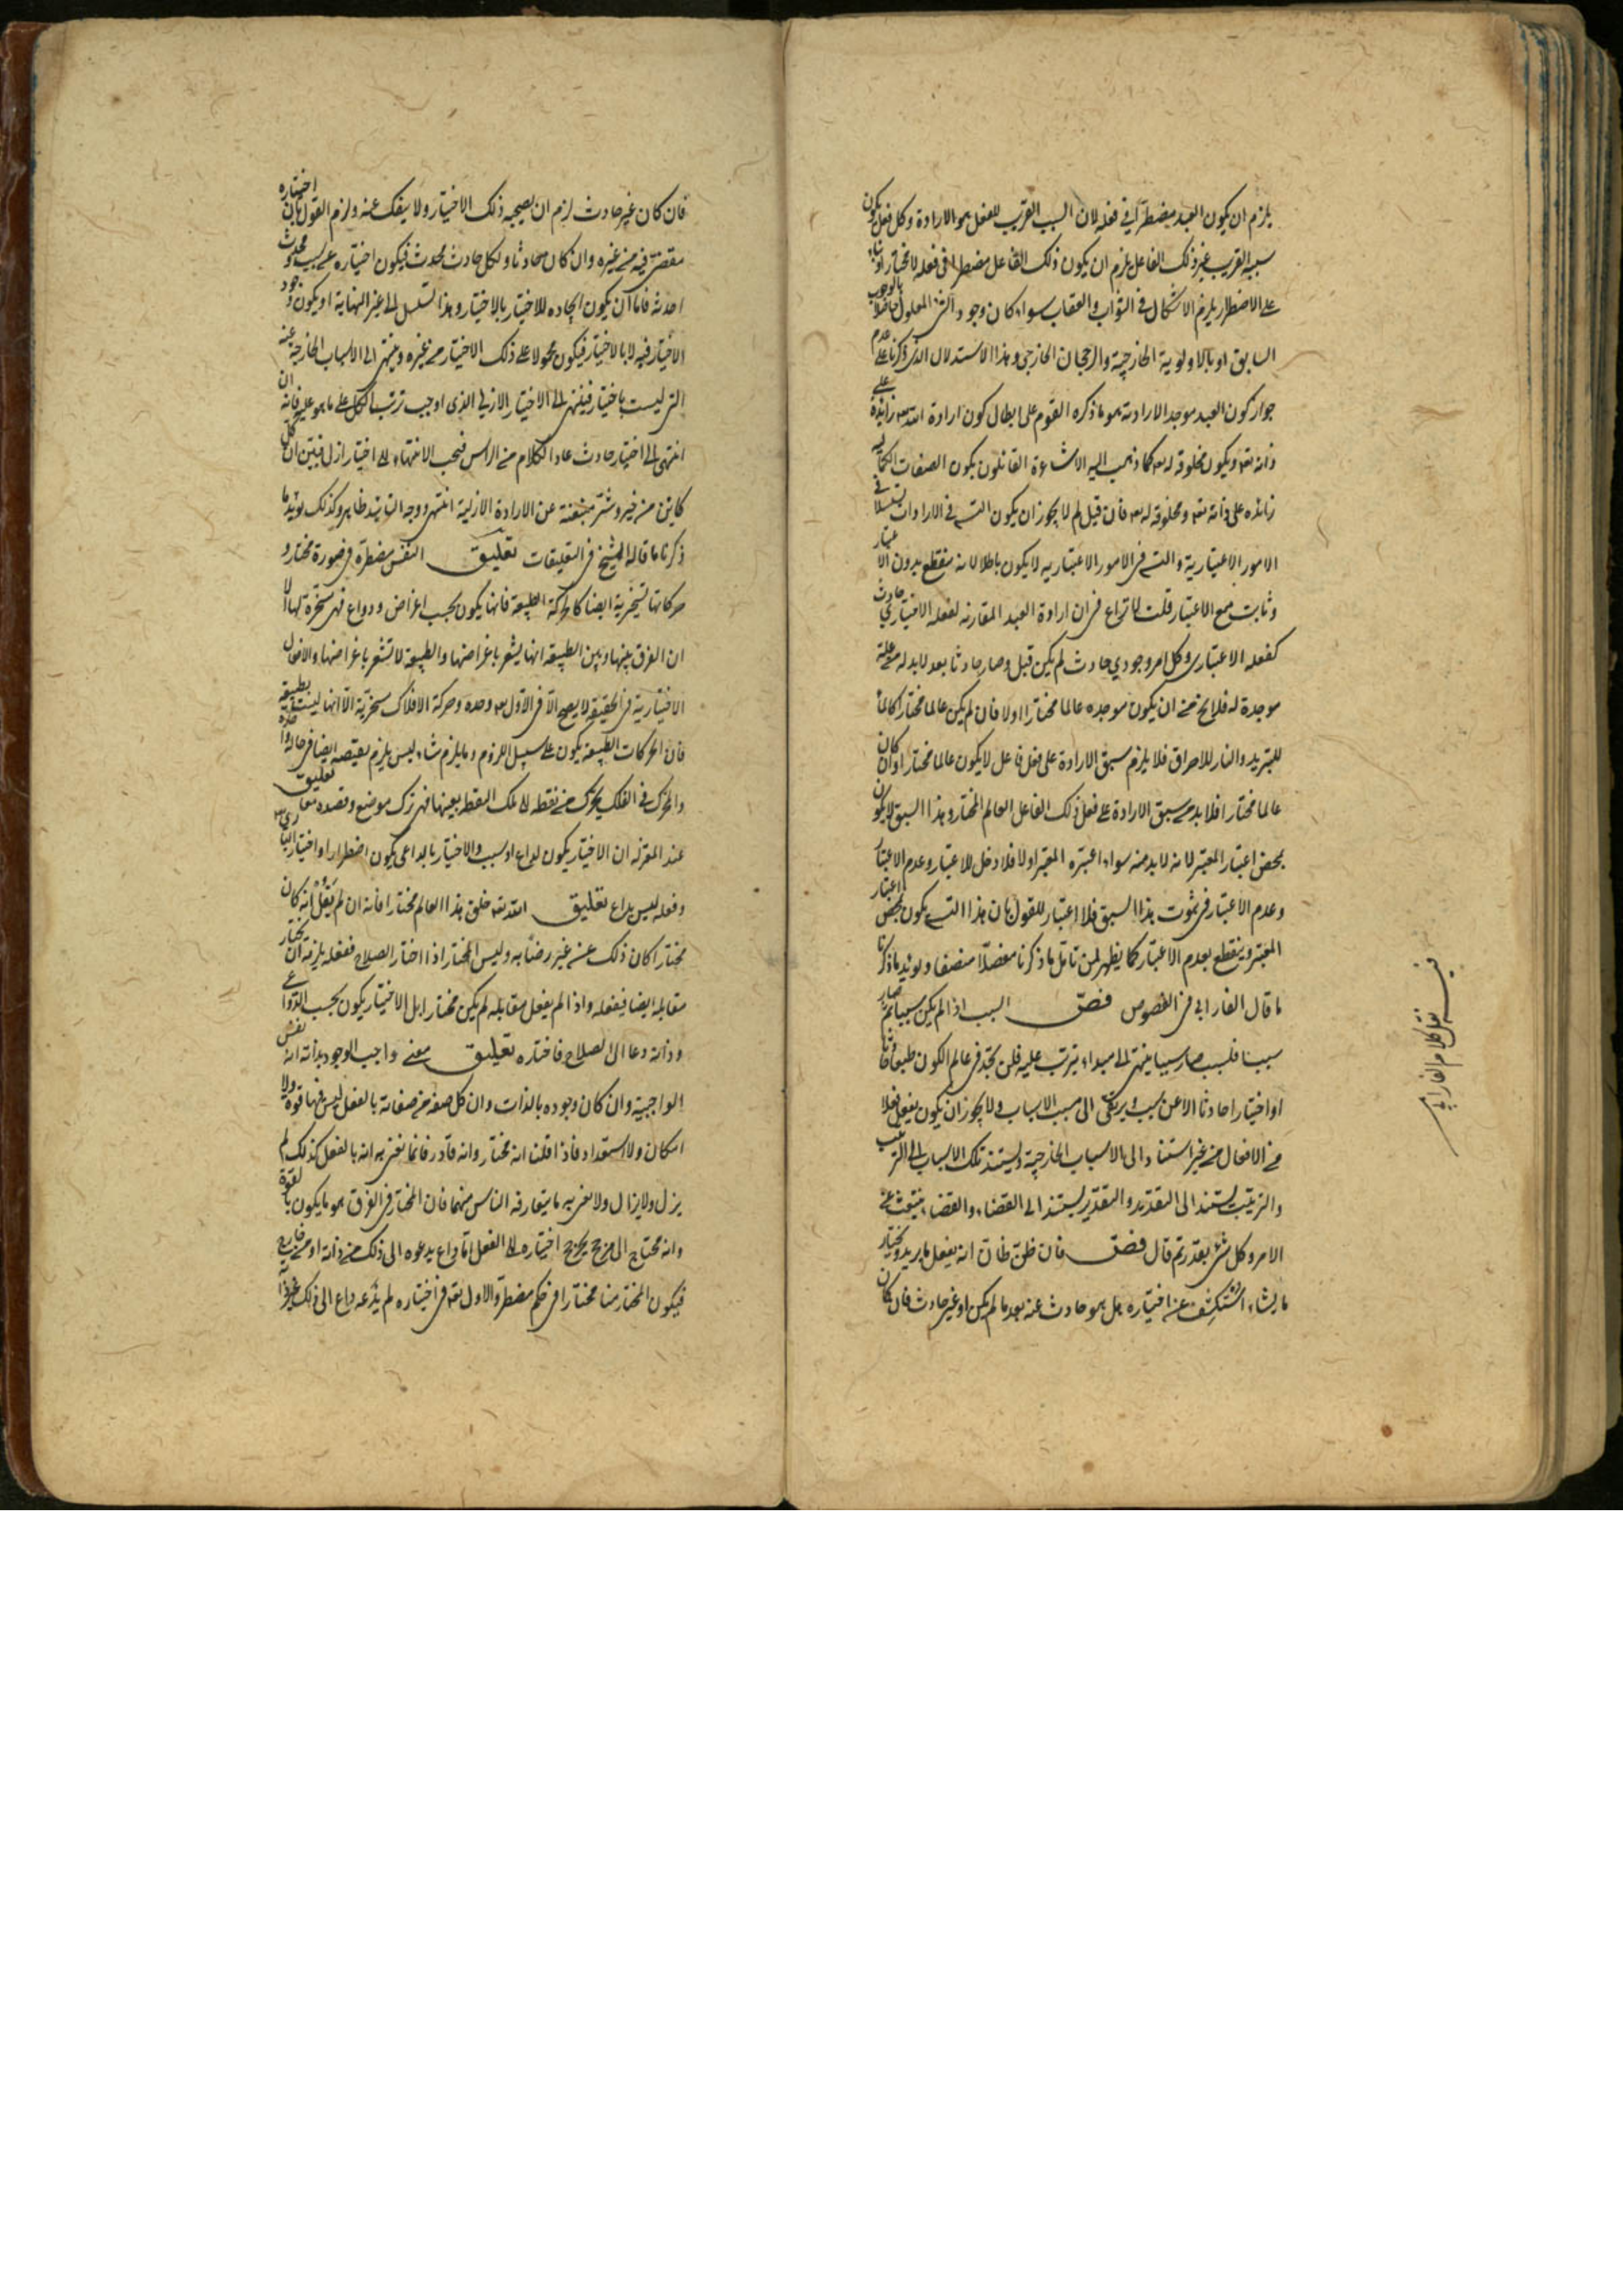 يلزم ان يكون العبد مضطرا في فعله لان السبب القريب للفعل هو الارادة وكل فعل يكون
سببه القريب غير ذلك الفاعل يلزم ان يكون ذلك الفاعل مضطرا في فعله لا مختارا وبناء
على الاضطرار يلزم الاشكال في الثواب والعقاب سواء كان وجود المعلول بالوجوب
السابق او بالاولوية الخارجية والرجحان الخارجي وهذا الاستدلال الذي ذكرنا على عدم
جواز كون العبد موجد الارادته هو ما ذكره القوم على ابطال كون ارادة الله تعه زايدة على
ذاته تعه ويكون مخلوقة له تعه كما ذهب اليه الاشاعرة القائلون بكون الصفات الكمالية
زائدة على ذاته تعه ومخلوقة له تعه فان قيل لم لا يجوز ان يكون التسه في الارادات تسلسلا في
الامور الاعتبارية والتسه في الامور الاعتباريه لا يكون باطلا لانه ينقطع بدون الاعتبار
وثابت مع الاعتبار قلت لا نزاع في ان ارادة العبد المقارنة لفعله الاختياري حادث
كفعله الاعتباري وكل امر وجودي حادث لم يكن قبل وصار حادثا بعد لابد له من علة
موجدة له فلا يخ من ان يكون موجده عالما مختارا اولا فان لم يكن عالما مختارا كالماء
للتبريد والنار للاحراق فلا يلزم سبق الارادة على فعل فاعل لا يكون عالما مختارا وان كان
عالما مختارا فلا بد من سبق الارادة على فعل ذلك الفاعل العالم المختار وهذا السبق لا يكون
بمحض اعتبار المعتبر لانه لا بد منه سواء اعتبره المعتبر اولا فلا دخل للاعتبار وعدم الاعتبار
وعدم الاعتبار في ثبوت هذا السبق فلا اعتبار للقول بان هذا التسه يكون بمحض اعتبار
المعتبر وينقطع بعدم الاعتبار كما يظهر لمن تامل ما ذكرنا مفصلا منصفا ويؤيد ما ذكرنا
ما قال الفارابي في الفصوص فصّ السبب اذا لم يكن سببا ثم صار
سببا فلسبب صار سببا وينتهي الى مبداء يترتب عليه فلن تجد في عالم الكون طبعا حادثا
او اختيارا حادثا الا عن سبب ويرتقي الى مسبب الاسباب ولا يجوز ان يكون يفعل فعلا
من الافعال من غير استناد الى الاسباب الخارجية وليستند تلك الاسباب الى الترتيب
والترتيب يستند الى التقدير والتقدير يستند الى القضاء والقضاء ينبعث عن
الامر وكل شئ بقدر ثم قال فصّ فان ظن ظان انه يفعل ما يريد ويختار
ما يشاء استكشف عن اختياره هل هو حادث عنه بعد ما لم يكن او غير حادث فان كان
فيه نقل كلام الفارابي
فان كان غير حادث لزم ان يصحبه ذلك الاختيار ولا ينفك عنه ولزم القول بان اختياره
مقتضى فيه من غيره وان كان حادثا ولكل حادث محدث فيكون اختياره عن سبب محدث
احدثه فاما ان يكون ايجاده للاختيار بالاختيار وهذا تسلسل الى غير النهاية او يكون وجود
الاختيار فيه لا بالاختيار فيكون محمولا على ذلك الاختيار من غيره وينتهي الى الاسباب الخارجية عنه
التي ليست باختياره فينتهي الى الاختيار الازلي الذي اوجب ترتيب الكل على ما هو عليه فانه ان
انتهى الى اختيار حادث عاد الكلام من الراس فيجب الانتهاء الى اختيار ازلي فتبين ان كل
كاين من خير وشر منبعثة عن الارادة الازلية انتهى ووجه التاييد ظاهر وكذلك يؤيد ما
ذكرنا ما قاله الشيخ في التعليقات تعليق النفس مضطرة في صورة مختار و
حركاتها تسخيرية ايضا كالحركة الطبيعة فانها يكون بحسب اغراض ودواع فهي مسخرة لها الا
ان الفرق بينها وبين الطبيعة انها يشعر باغراضها والطبيعة لا تشعر باغراضها والافعال
الاختيارية في الحقيقة لا يصح الا في الاول تعه وحده وحركة الافلاك تسخيرية الا انها ليست بطبيعة
فان الحركات الطبيعة يكون على سبيل اللزوم وما يلزم شاء ليس يلزم نقيضه ايضا في حالة واحدة
والمحرك في الفلك يحرك من نقطة الى تلك النقطة بعينها فهي ترك موضع وقصده معا تعليق
عند المعتزلة ان الاختيار يكون لداع او سبب والاختيار بالداعي يكون اضطرارا واختيار الباري تعه
وفعله ليس بداع تعليق الله تعه خلق هذا العالم مختارا فانه ان لم نقل انه كان
مختارا كان ذلك عنه غير رضا به وليس المختار اذا اختار الصلاح ففعله يلزمه ان يختار
مقابله ايضا فيفعله واذا لم يفعل مقابله لم يكن مختارا بل الاختيار يكون بحسب الدواعي
وذاته دعا الى الصلاح فاختاره تعليق معنى واجب الوجود بذاته انه نفس
الواجبية وان كان وجوده بالذات وان كل صفة من صفاته بالفعل ليس فيها قوة ولا
امكان ولا استعداد فاذا قلنا انه مختار وانه قادر فانما نعني به انه بالفعل كذلك لم
يزل ولا يزال ولا نعني به ما يتعارفه الناس منهما فان المختار في العرف هو ما يكون بالقوة
وانه محتاج الى مرجح يخرج اختياره الى الفعل اما داع يدعوه الى ذلك من ذاته او من خارج
فيكون المختار منا مختارا في حكم مضطر والاول تعه في اختياره لم يدعه داع الى ذلك غير ذاته